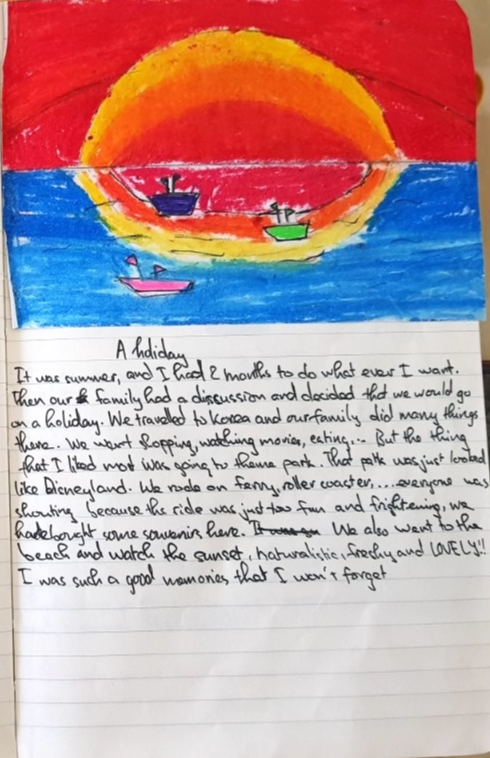 A holiday
It was summer, and I had 2 months to do what ever I want.
Then our family had a discussion and decided that we would go
on a holiday. We travelled to Korea and our family did many things
there. We want shopping, watching movies, eating,... But the thing
that I liked most was going to theme park. That park was just looked
like Disneyland. We rode on ferry, roller coaster,....everyone was
shouting because the ride was just too fun and frightening, we
bought some souvenirs here. We also went to the
beach and watch the sunset, naturalistic, freshy and LOVELY!!
I was such a good memories that I won't forget